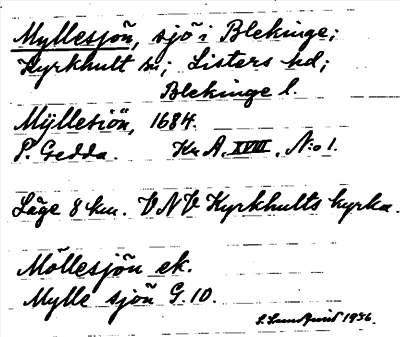 Myllesjön, sjö i Blekinge;
Kyrkhult sn; Listers hd;
Blekinge l.
Mÿllesiön, 1684.
P. Gedda. Kr A, XVIII, N:o 1.
Läge 8 km. VNV Kyrkhults kyrka.
Möllesjön ek.
Mylle sjön G.10.
1936.